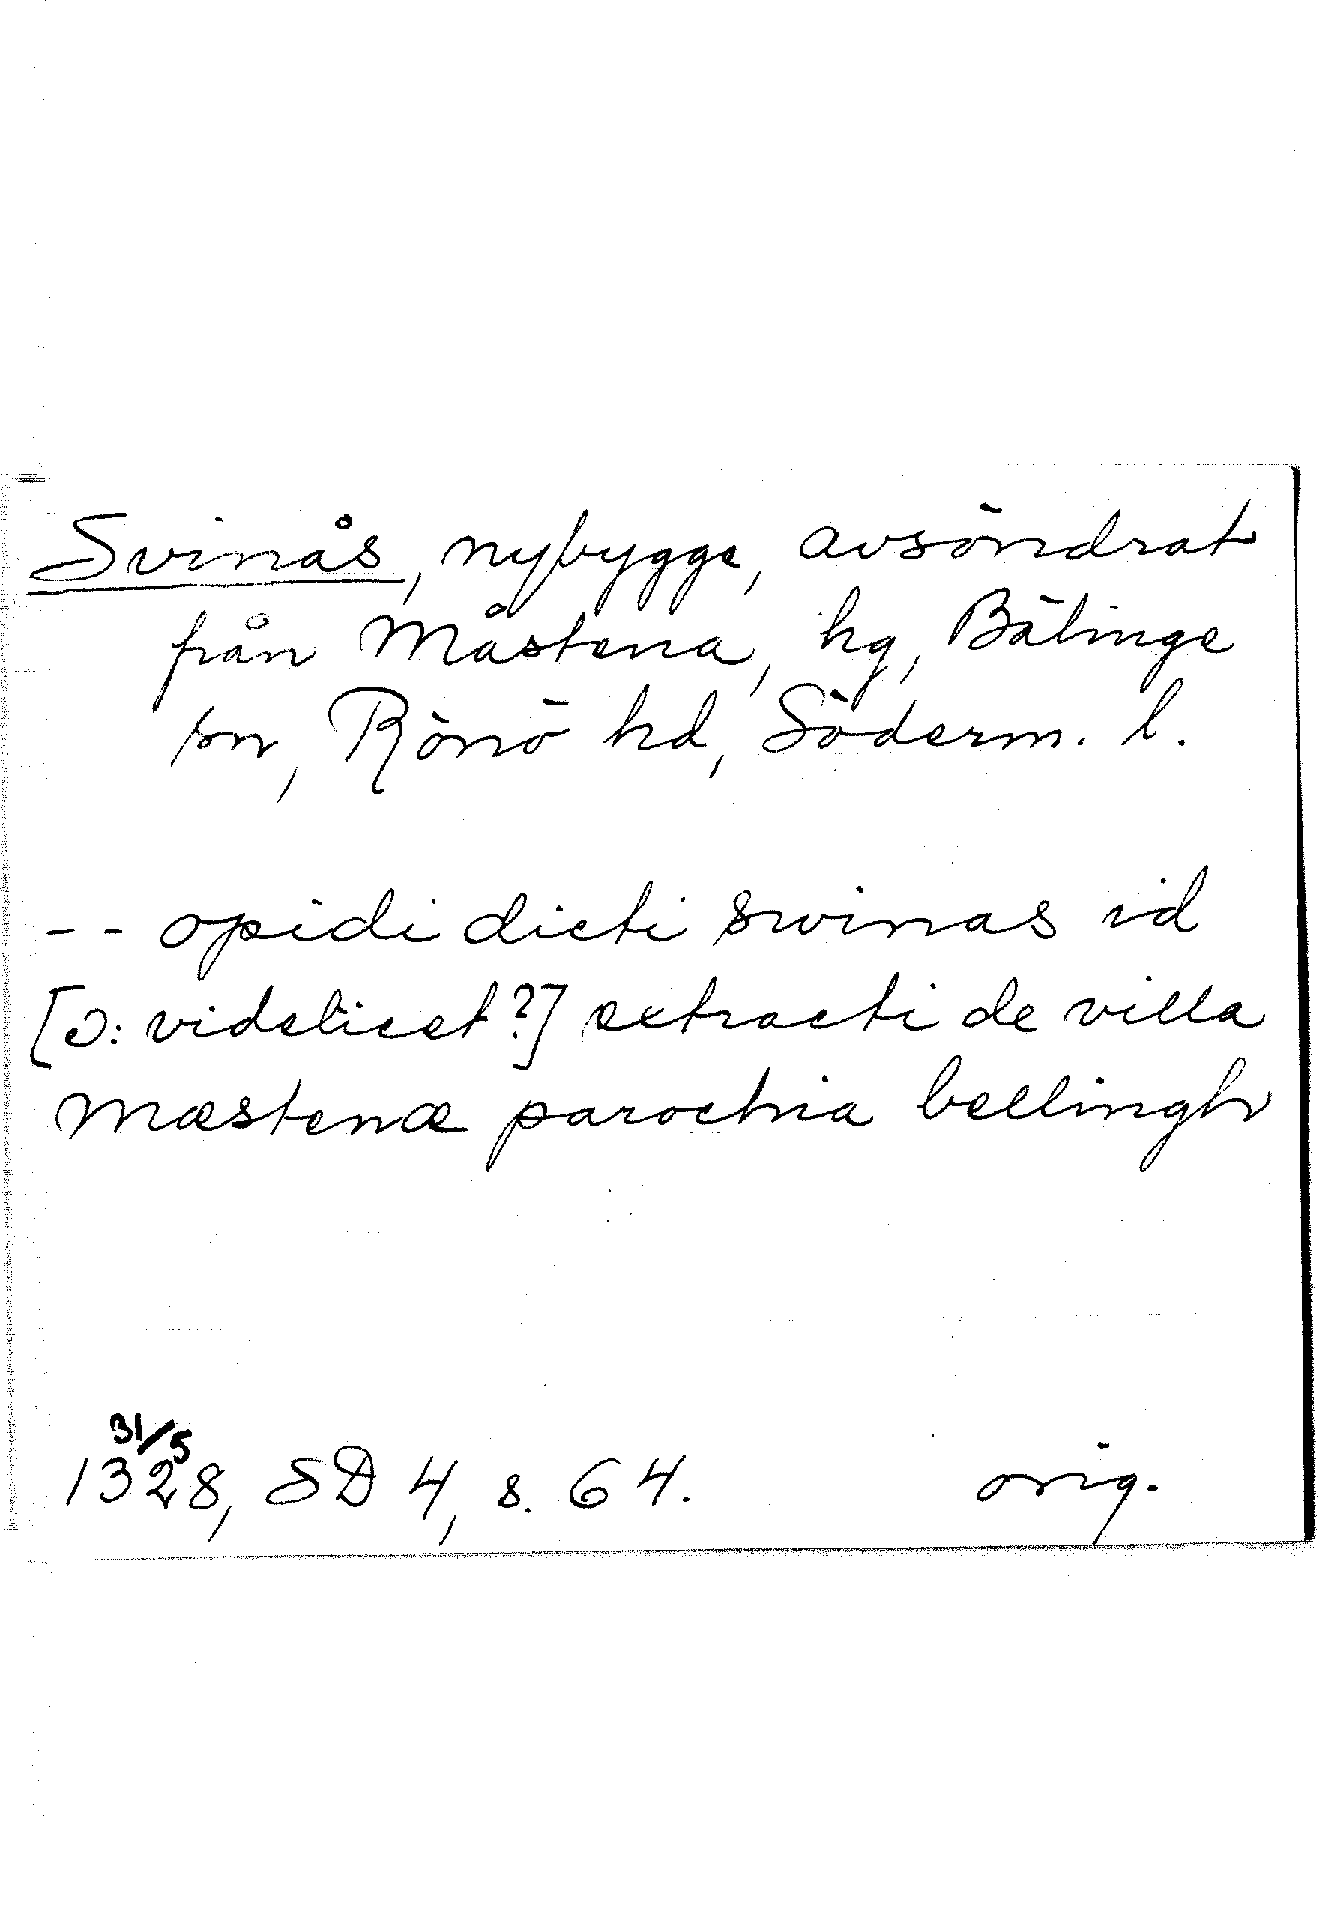 Svinås, nybygge, avsöndrat
från Måstena, hg, Bälinge
sn, Rönö hd, Söderm. l.
-- opidi dicti swinas vid
[ɔ: videlicet?] extracti de villa
mæstenæ parochia bellingh
31/5
1328, SD 4, s. 64. orig.